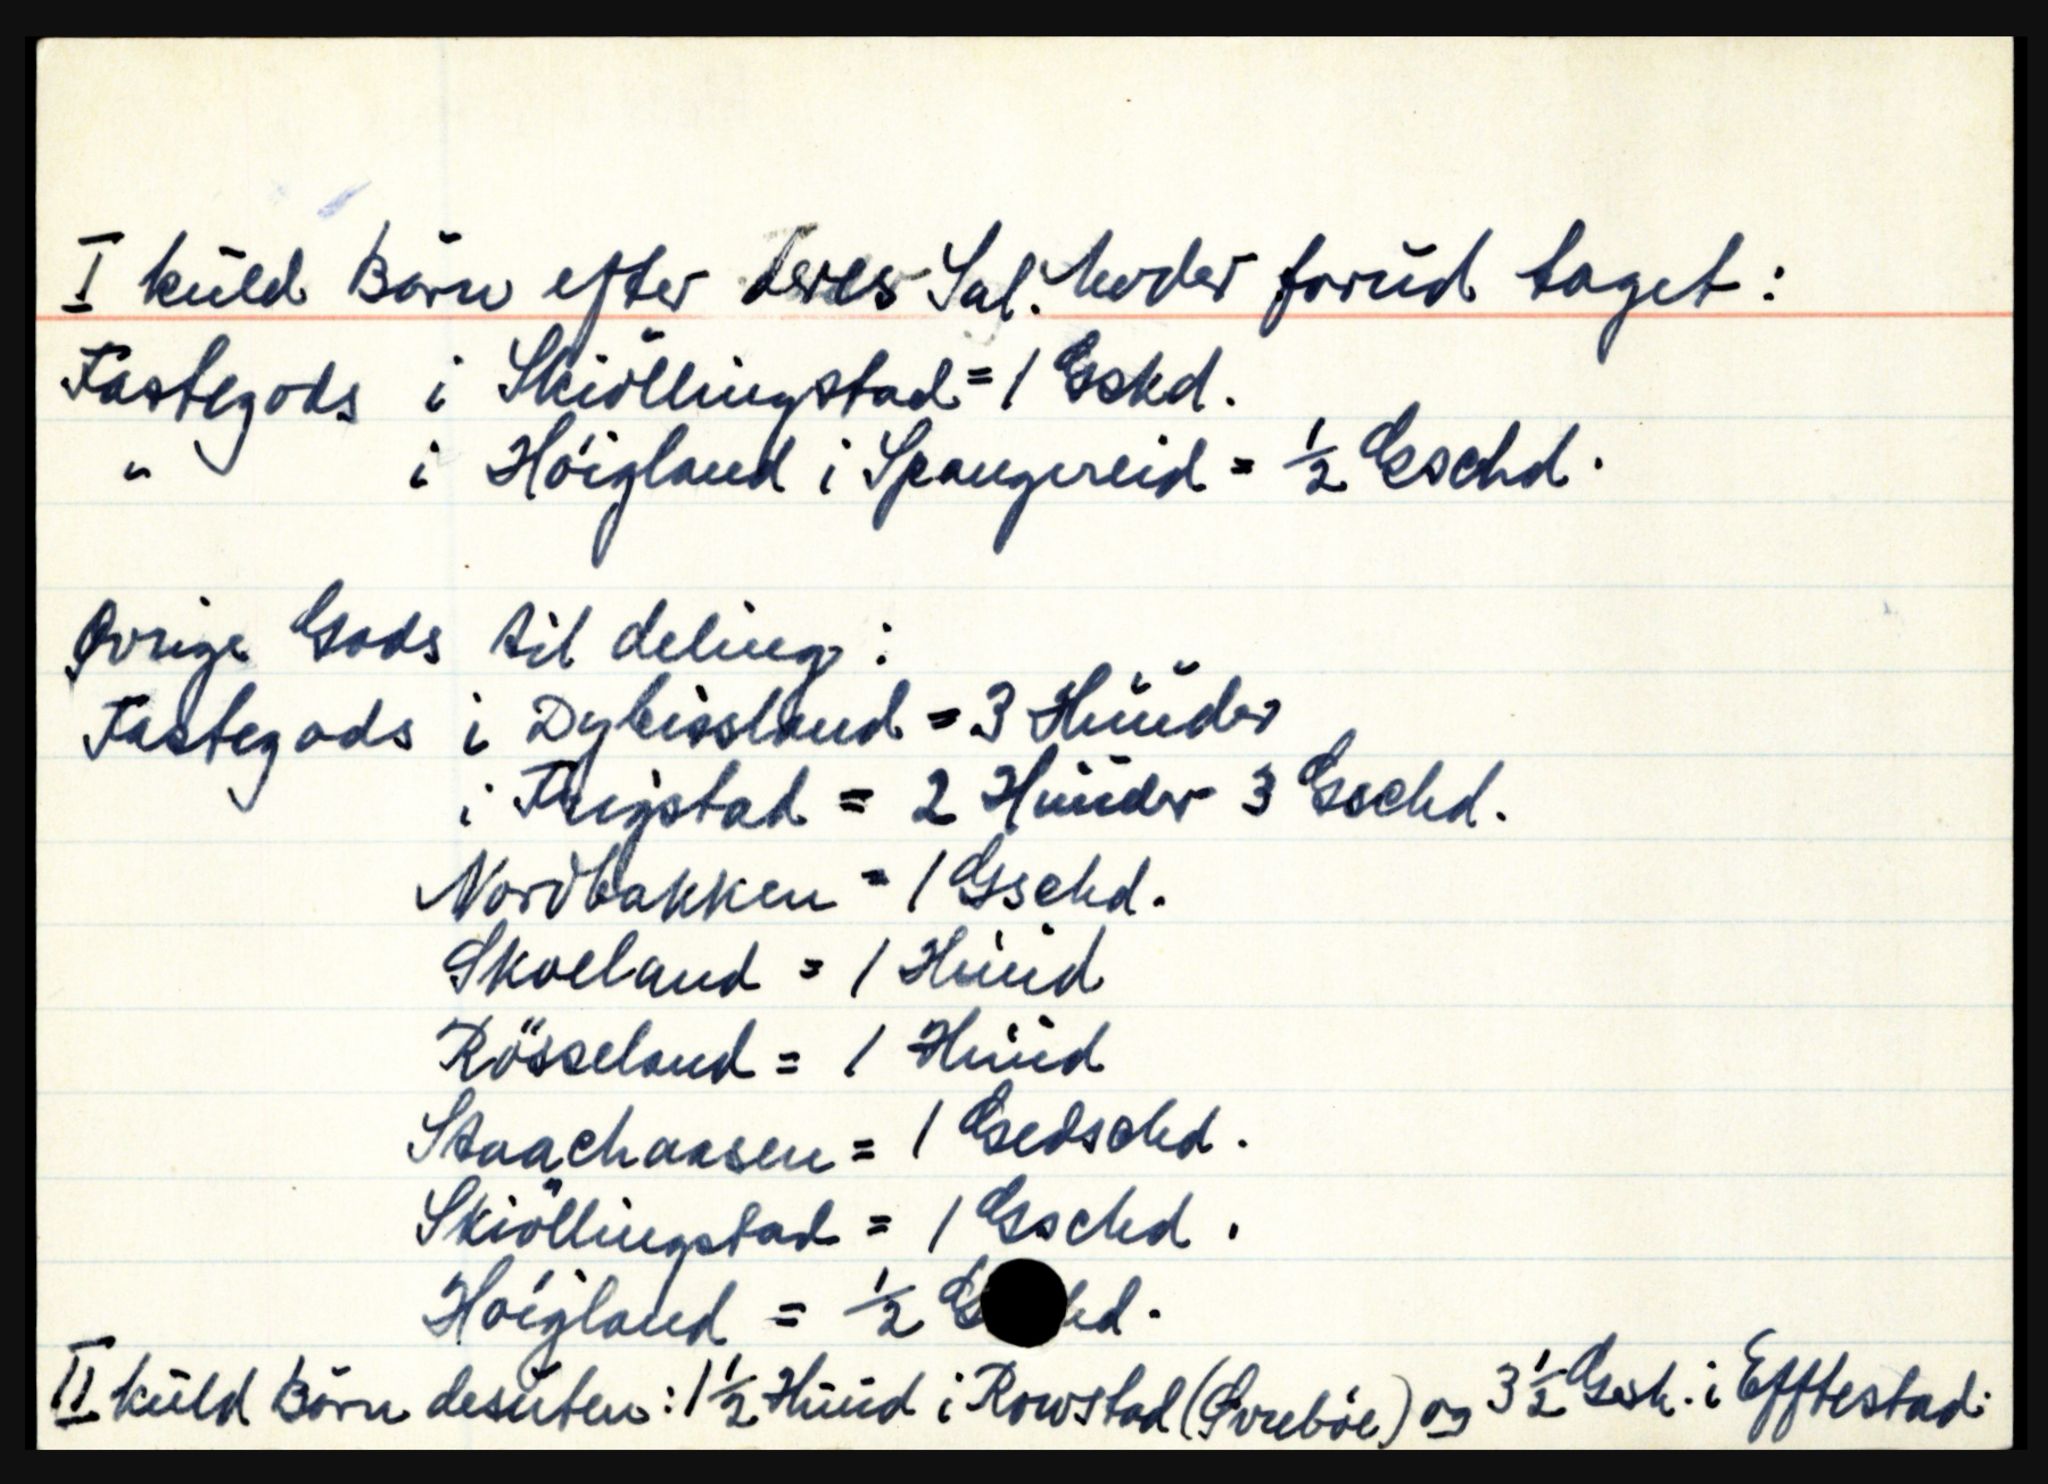 I kŭld Börn efter deres Sal. Moder forŭd taget:
Fastegods i Skiöllingstad = 1 Gskd.
" i Höigland i Spangereid = ½ Gschd.
Øvrige Gods til deling:
Fastegods i Dybissland = 3 Hŭŭder
i Frigstad = 2 Hŭŭder 3 Gschd.
Nordbakken = 1 Gschd.
Skoeland = 1 Hŭŭd
Rösseland = 1 Hŭŭd
Staachaasen = 1 Gedschd.
Skiöllingstad = 1 Gschd.
Höigland = ½ G hd.
II kŭld Börn desŭten: 1½ Hŭŭd i Rowstad (Øvreböe) og 3½ Gesk. i Efftestad.